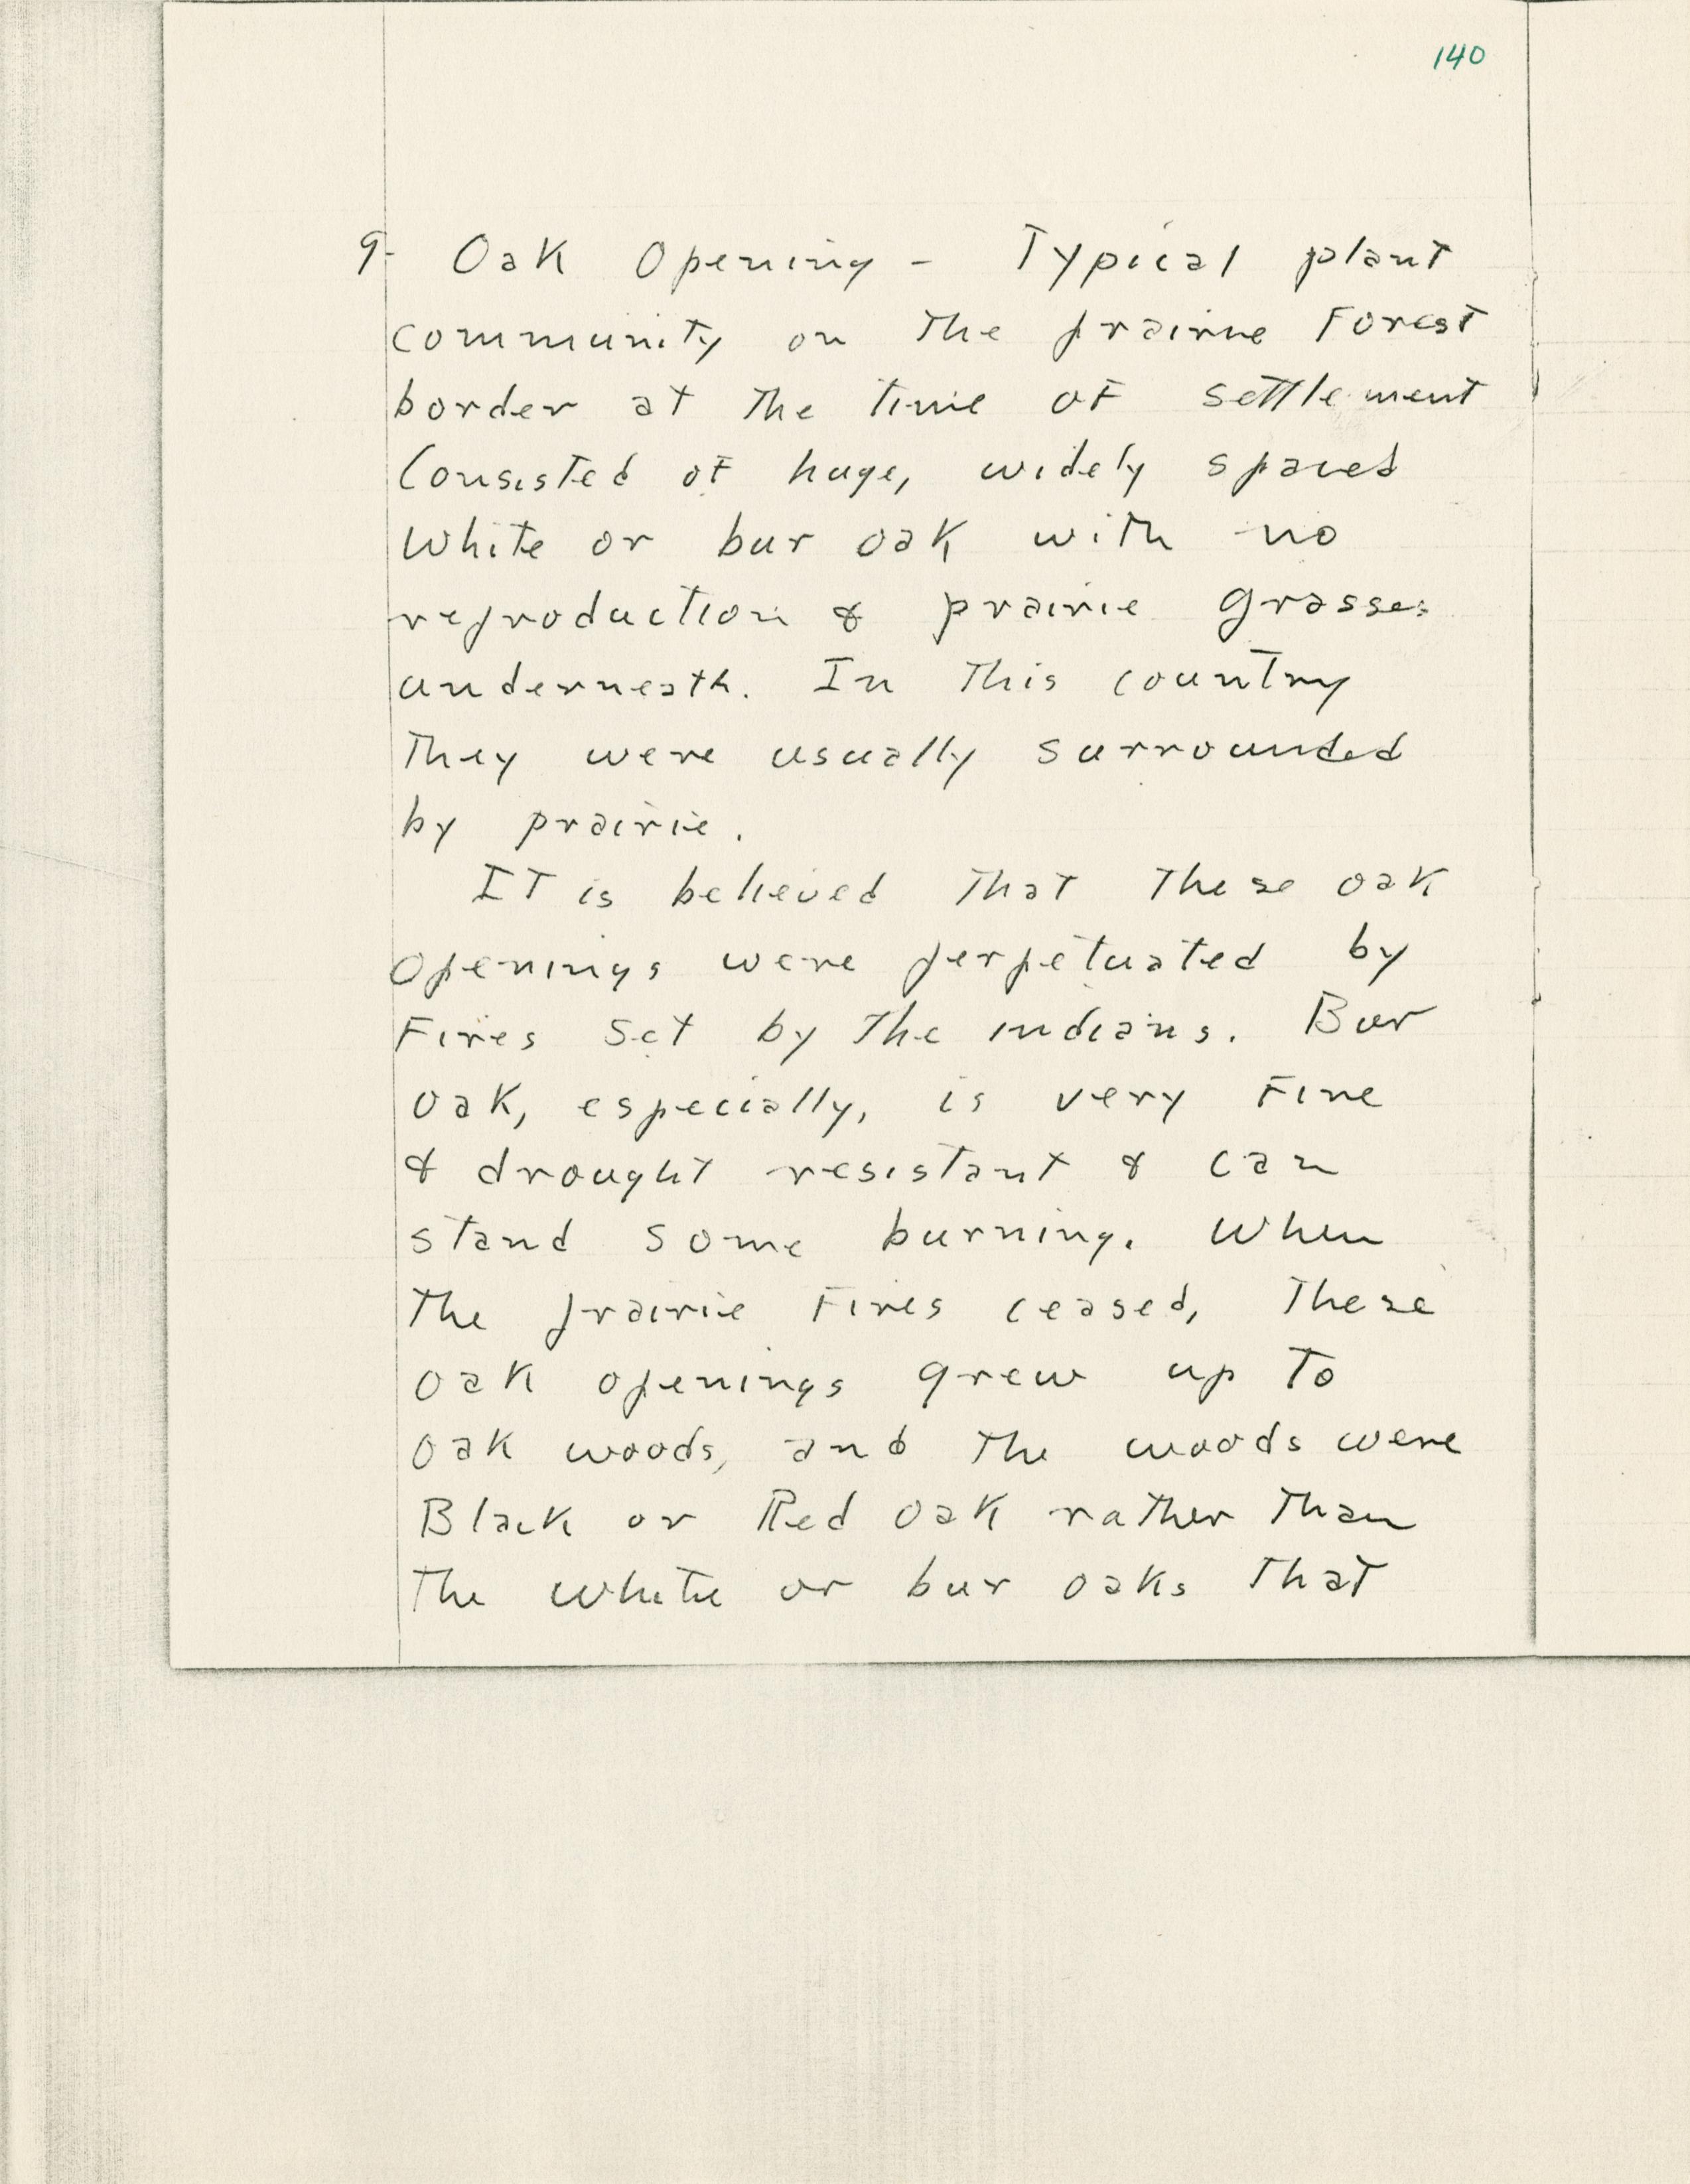 140
9- Oak Opening - Typical plant
community on the prairie Forest
border at the time of settlement
Consisted of huge, widely spaced
White or bur oak with no
reproduction & prairie grasses
underneath. In this country
they were usually surrounded
by prairie.
It is believed that these oak
openings were perpetuated by
Fires set by the indians. Bur
oak, especially, is very Fire
& drought resistant & can
stand some burning. When
the prairie Fires ceased, these
oak openings grew up to
oak woods, and the woods were
Black or Red oak rather than
the white or bur oaks that